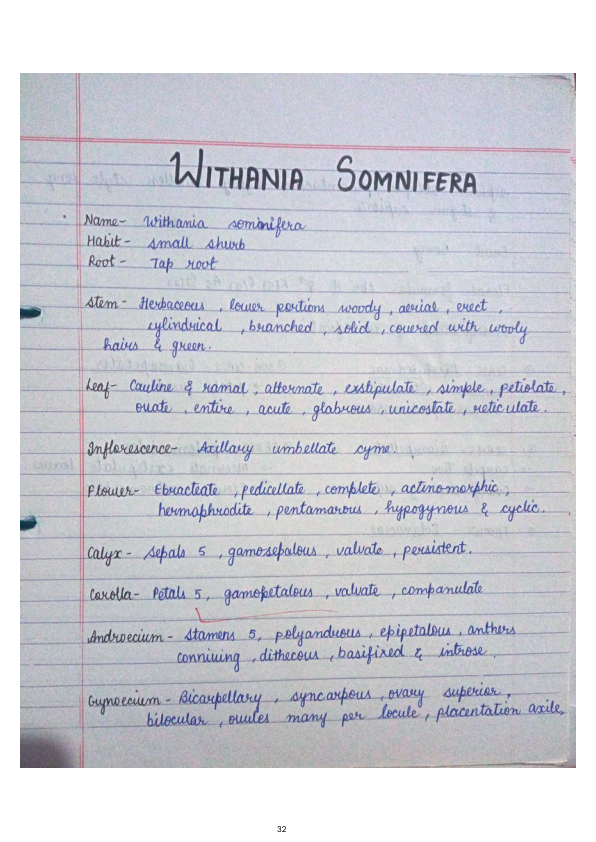 WITHANIA SOMNIFERA
Name- Withania somnifera
Habit- small shurb
Root- Tap root
Stem- Herbaceous, lower portions woody, aerial, erect,
cylindrical, branched, solid, couered with wooly
hairs & green.
Leaf- Cauline & ramal, alternate, exstipulate, simple, petiolate,
ouate, entire, acute, glabrous, unicostate, reticulate.
Inflorescence- Axillary umbellate cyme.
Flower- Ebracteate, pedicellate, complete, actinomorphic,
hermaphrodite, pentamarous, hypogynous & cyclic.
Calyx- Sepals 5, gamosepalous, valvate, persistent.
Corolla- Petals 5, gamopetalous, valvate, companulate
Androecium- Stamens 5, polyanduous, epipetalous, anthers
conniuing, dithecous, basifixed & introse.
Gynoecium- Bicarpellary, syncarpous, ovary superior,
bilocular, ouules many per locule, placentation axile.
32